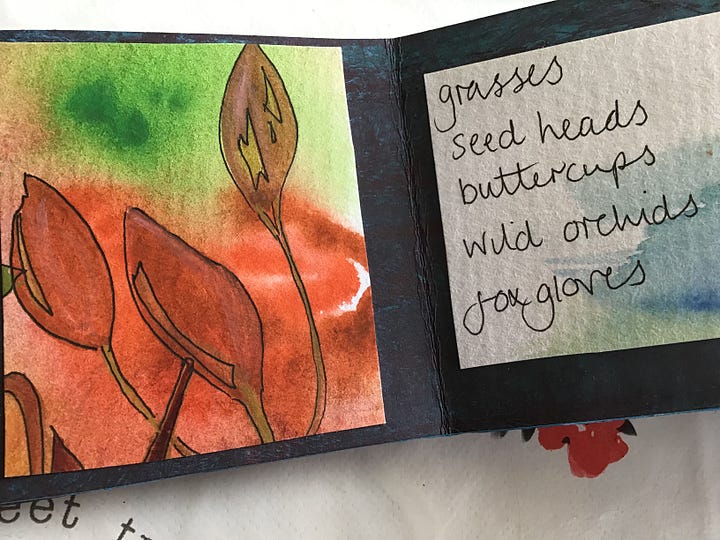 grasses
seed heads
buttercups
wild orchids
foxgloves